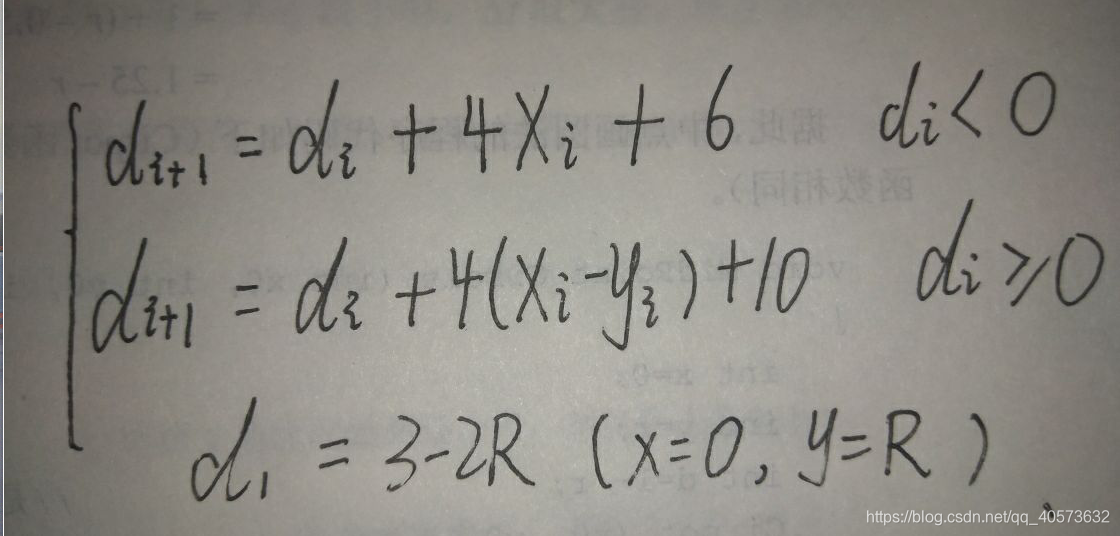 = 1.25 - r
d_{i+1} = d_i + 4x_i + 6 d_i < 0
函数相同)。
d_{i+1} = d_i + 4(x_i - y_i) + 10 d_i ≥ 0
int x=0;
d_1 = 3-2R (x=0, y=R)
https://blog.csdn.net/qq_40573632